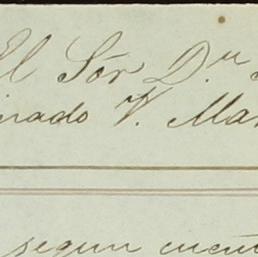 El Sör D.ⁿ
inado V. Mar
segun cuen